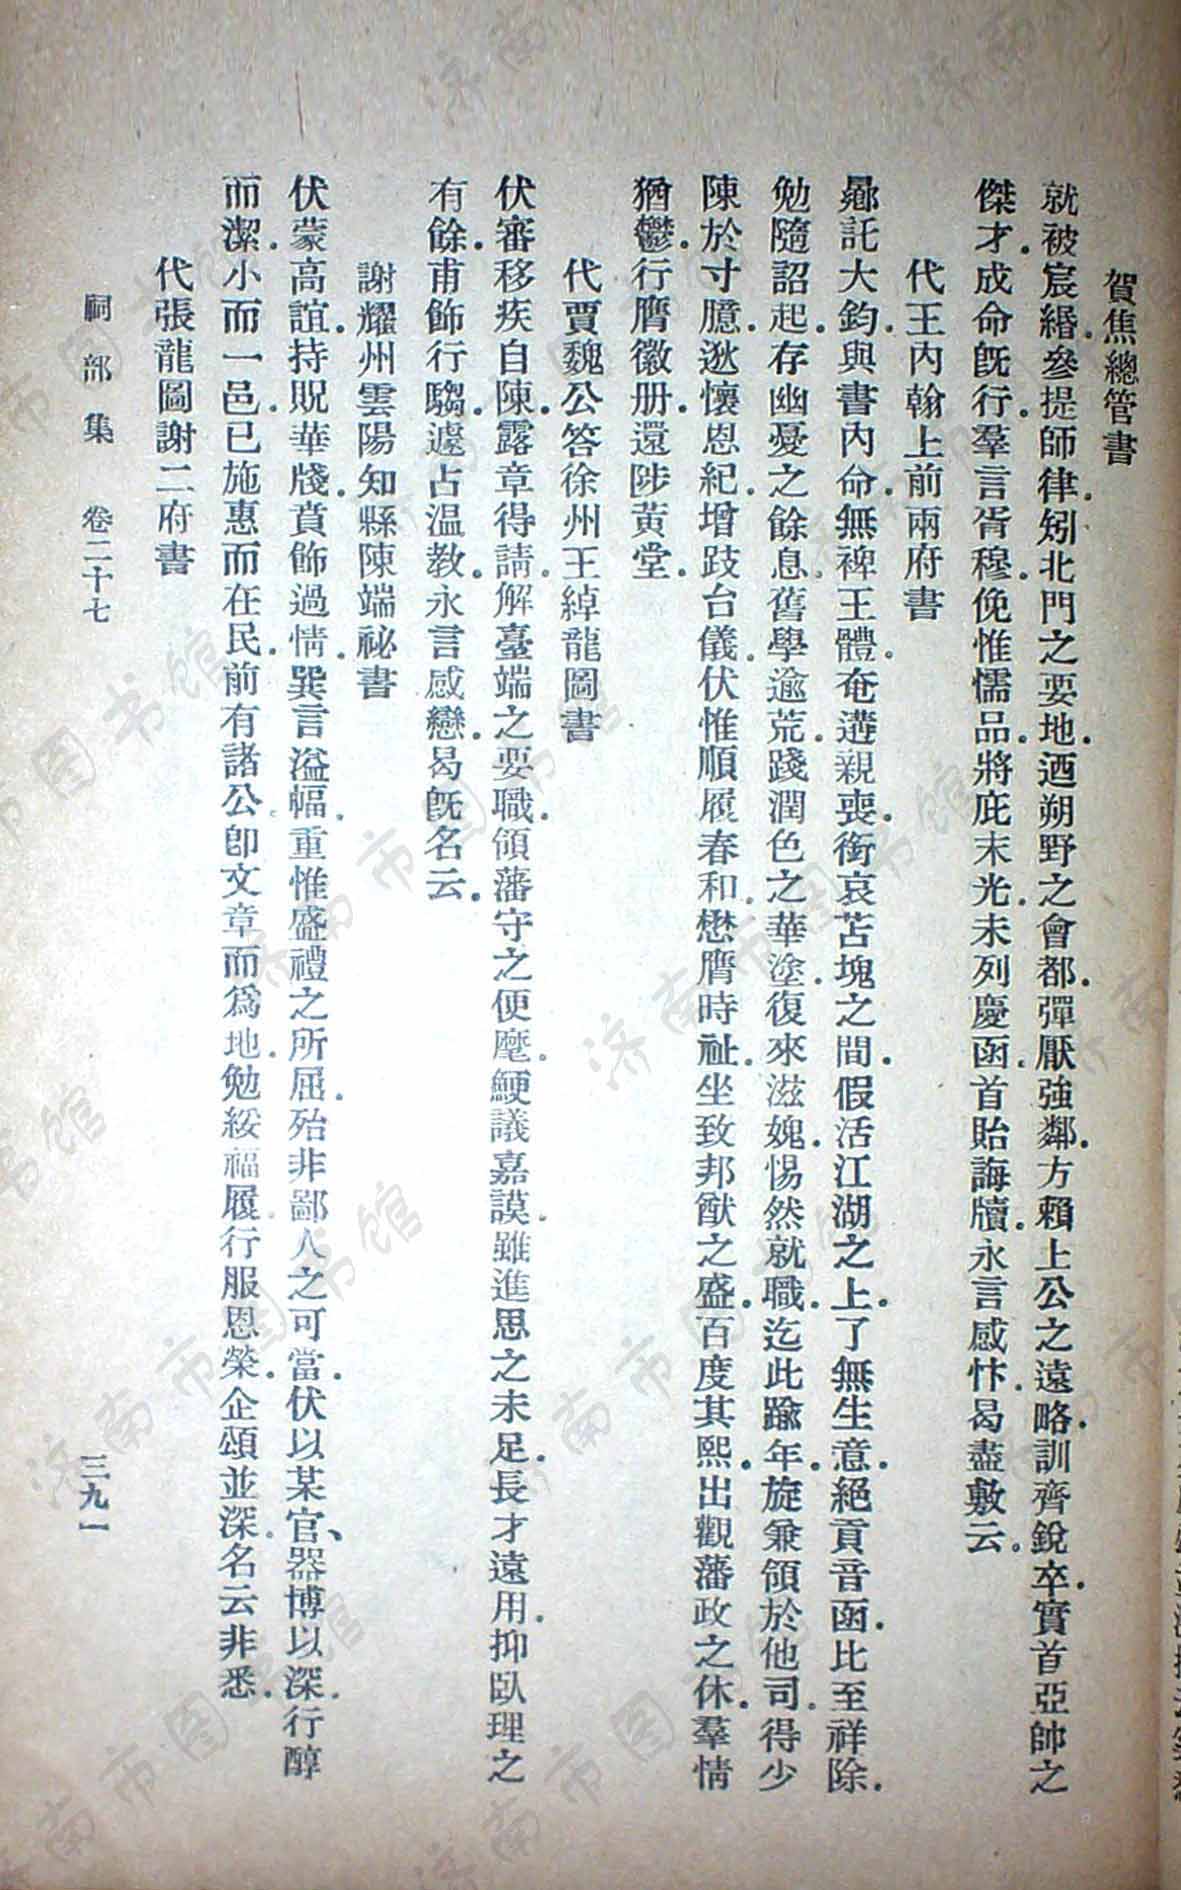 賀焦總管書
就被宸綍.參提師律.矧北門之要地.迺朔野之會都.彈厭強鄰.方賴上公之遠略.訓齊銳卒.實首亞帥之
傑才.成命旣行.羣言胥穆.俛惟懦品.將庇末光.未列慶函.首貽誨牘.永言感忭.曷盡敷云。
代王內翰上前兩府書
曏託大鈞.與書內命.無裨王體.奄遘親喪.銜哀苫塊之間.假活江湖之上.了無生意.絕貢音函.比至祥除.
勉隨詔起.存幽憂之餘息.舊學逾荒.踐潤色之華塗.復來滋媿.惕然就職.迄此踰年.旋兼領於他司.得少
陳於寸臆.逖懷恩紀.增跂台儀.伏惟順履春和.懋膺時祉.坐致邦猷之盛.百度其熙.出觀藩政之休.羣情
猶鬱.行膺徽册.還陟黃堂.
代賈魏公答徐州王綽龍圖書
伏審移疾自陳.露章得請.解臺端之要職.領藩守之便麾.鯁議嘉謨.雖進思之未足.長才遠用.抑臥理之
有餘.甫飾行騶.遽占溫教.永言感戀.曷旣名云.
謝耀州雲陽知縣陳端祕書
伏蒙高誼.持貺華牋.賁飾過情.巽言溢幅.重惟盛禮之所屈.殆非鄙人之可當.伏以某官、器博以深.行醇
而潔.小而一邑.已施惠而在民.前有諸公.卽文章而爲地.勉綏福履.行服恩榮.企頌並深.名云非悉.
代張龍圖謝二府書
祠部集 卷二十七
三九一
济南市图书馆